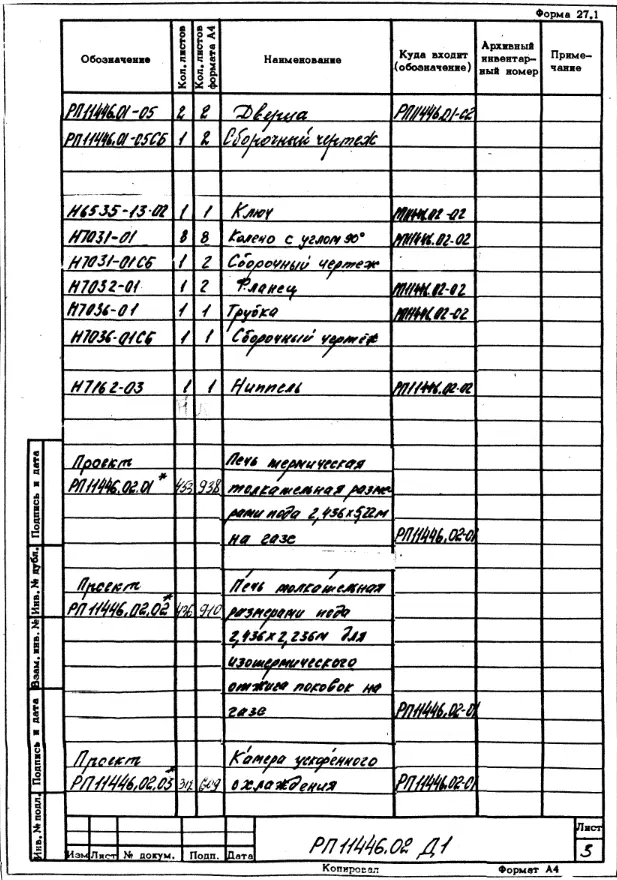 Форма 27.1
Обозначение Кол. листов Кол. листов формата А4 Наименование Куда входит (обозначение) Архивный инвентар-ный номер Приме-чание
РП11446.01-05 2 2 Дверца РП11446.01-02
РП11446.01-05СБ 1 2 Сборочный чертеж
Н6535-13-02 1 1 Ключ РП11446.02-02
Н7031-01 8 8 Колено с углом 90° РП11446.02-02
Н7031-01СБ 1 2 Сборочный чертеж
Н7032-01 1 2 Фланец РП11446.02-02
Н7036-01 1 1 Трубка РП11446.02-02
Н7036-01СБ 1 1 Сборочный чертёж
Н7162-03 1 1 Ниппель РП11446.02-02
Проект Печь термическая
РП11446.02.01* 453 938 толкательная разме-
рами пода 2,436х5,22м
на газе РП11446.02-01
Проект Печь толкательная
РП11446.02.02* 436 910 размерами пода
2,436х2,236м для
изотермического
отжига поковок на
газе РП11446.02-01
Проект Камера ускоренного
РП11446.02.03* охлаждения РП11446.02-01
Инв. № подл. Подпись и дата Взам. инв. № Инв. № дубл. Подпись и дата
Изм Лист № докум. Подп. Дата
РП11446.02 Д1
Лист
5
Копировал Формат А4